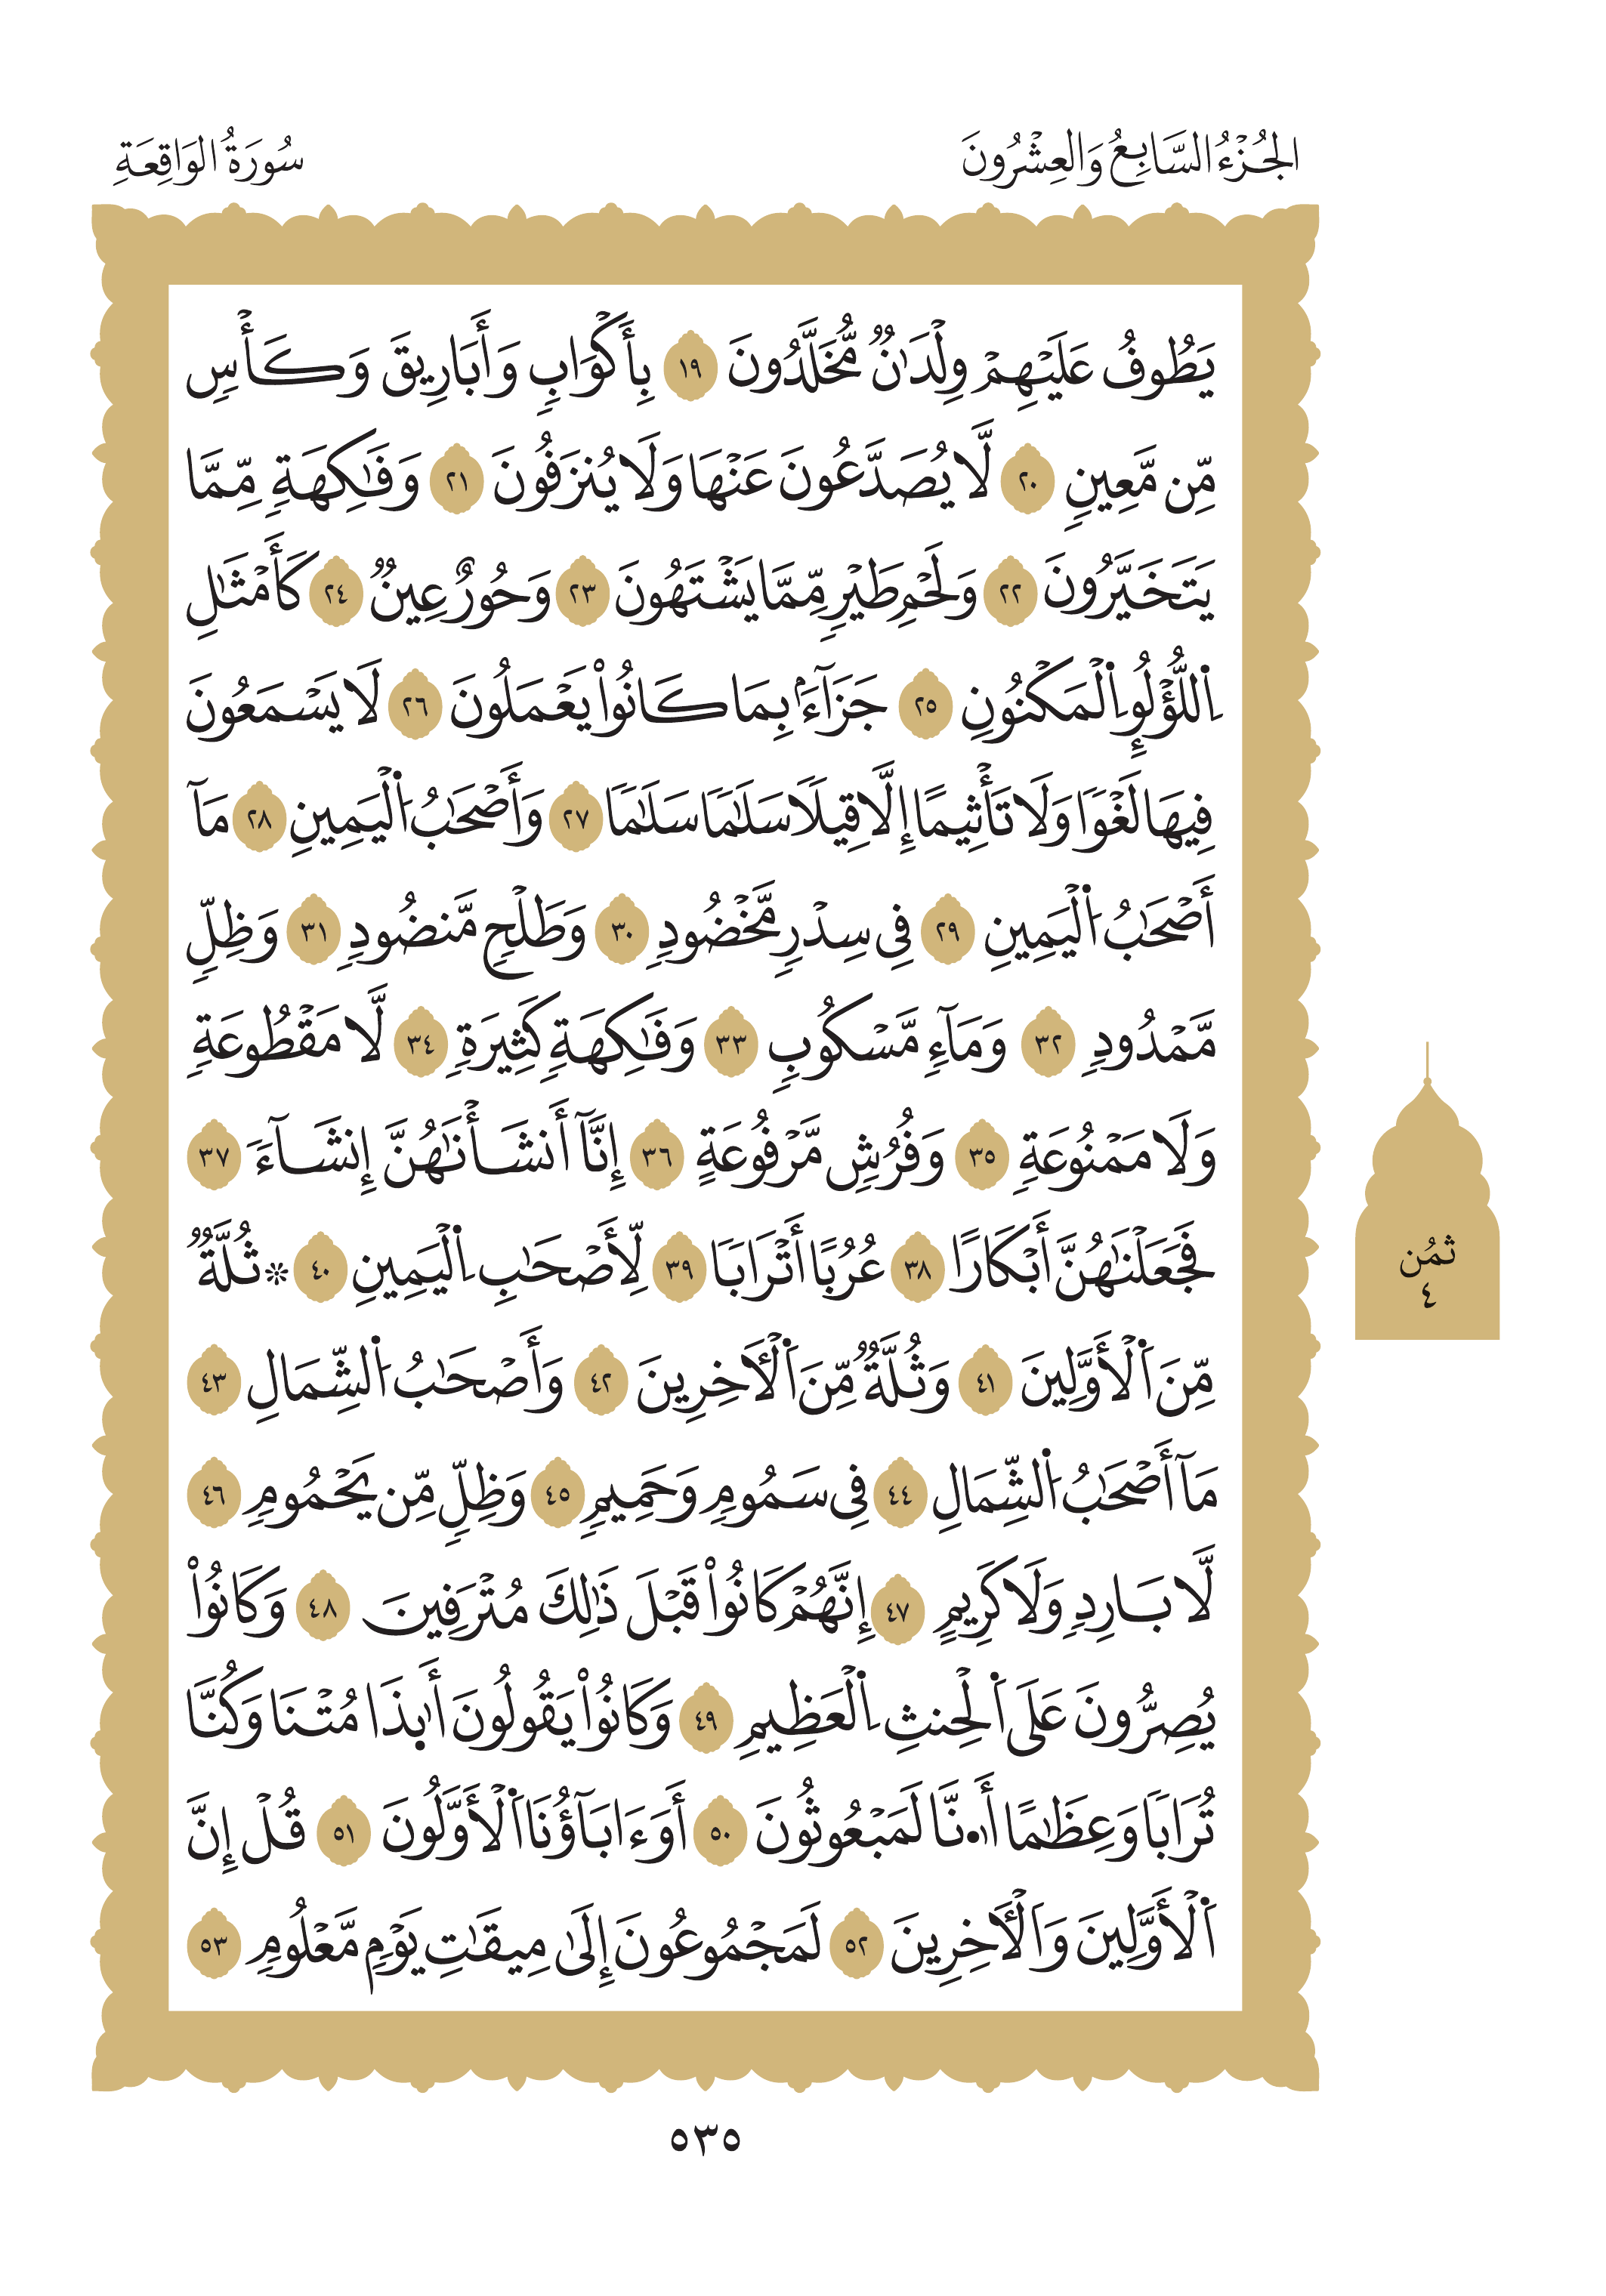 الجُزْءُ السَّابِعُ وَالعِشْرُونَ
سُورَةُ الوَاقِعَةِ
يَطُوفُ عَلَيْهِمْ وِلْدَٰنٌ مُّخَلَّدُونَ ١٩ بِأَكْوَابٍ وَأَبَارِيقَ وَكَأْسٍ
مِّن مَّعِينٍ ٢٠ لَّا يُصَدَّعُونَ عَنْهَا وَلَا يُنزَفُونَ ٢١ وَفَٰكِهَةٍ مِّمَّا
يَتَخَيَّرُونَ ٢٢ وَلَحْمِ طَيْرٍ مِّمَّا يَشْتَهُونَ ٢٣ وَحُورٌ عِينٌ ٢٤ كَأَمْثَٰلِ
اِ۬للُّؤْلُوِٕ اِ۬لْمَكْنُونِ ٢٥ جَزَآءَۢ بِمَا كَانُواْ يَعْمَلُونَ ٢٦ لَا يَسْمَعُونَ
فِيهَا لَغْوًا وَلَا تَأْثِيمًا إِلَّا قِيلًا سَلَٰمًا سَلَٰمًا ٢٧ وَأَصْحَٰبُ اُ۬لْيَمِينِ ٢٨ مَآ
أَصْحَٰبُ اُ۬لْيَمِينِ ٢٩ فِى سِدْرٍ مَّخْضُودٍ ٣٠ وَطَلْحٍ مَّنضُودٍ ٣١ وَظِلٍّ
مَّمْدُودٍ ٣٢ وَمَآءٍ مَّسْكُوبٍ ٣٣ وَفَٰكِهَةٍ كَثِيرَةٍ ٣٤ لَّا مَقْطُوعَةٍ
وَلَا مَمْنُوعَةٍ ٣٥ وَفُرُشٍ مَّرْفُوعَةٍ ٣٦ إِنَّآ أَنشَأْنَٰهُنَّ إِنشَآءً ٣٧
فَجَعَلْنَٰهُنَّ أَبْكَارًا ٣٨ عُرُبًا أَتْرَابًا ٣٩ لِّأَصْحَٰبِ اِ۬لْيَمِينِ ٤٠ ۞ ثُلَّةٌ
مِّنَ اَ۬لْأَوَّلِينَ ٤١ وَثُلَّةٌ مِّنَ اَ۬لْأٓخِرِينَ ٤٢ وَأَصْحَٰبُ اُ۬لشِّمَالِ ٤٣
مَآ أَصْحَٰبُ اُ۬لشِّمَالِ ٤٤ فِى سَمُومٍ وَحَمِيمٍ ٤٥ وَظِلٍّ مِّن يَحْمُومٍ ٤٦
لَّا بَارِدٍ وَلَا كَرِيمٍ ٤٧ إِنَّهُمْ كَانُواْ قَبْلَ ذَٰلِكَ مُتْرَفِينَ ٤٨ وَكَانُواْ
يُصِرُّونَ عَلَى اَ۬لْحِنثِ اِ۬لْعَظِيمِ ٤٩ وَكَانُواْ يَقُولُونَ أَىٰ۪ذَا مُتْنَا وَكُنَّا
تُرَابًا وَعِظَٰمًا أَٰ۬نَّا لَمَبْعُوثُونَ ٥٠ أَوَءَابَآؤُنَا اَ۬لْأَوَّلُونَ ٥١ قُلْ إِنَّ
اَ۬لْأَوَّلِينَ وَاَ۬لْأٓخِرِينَ ٥٢ لَمَجْمُوعُونَ إِلَىٰ مِيقَٰتِ يَوْمٍ مَّعْلُومٍ ٥٣
ثُمُن
٤
٥٣٥